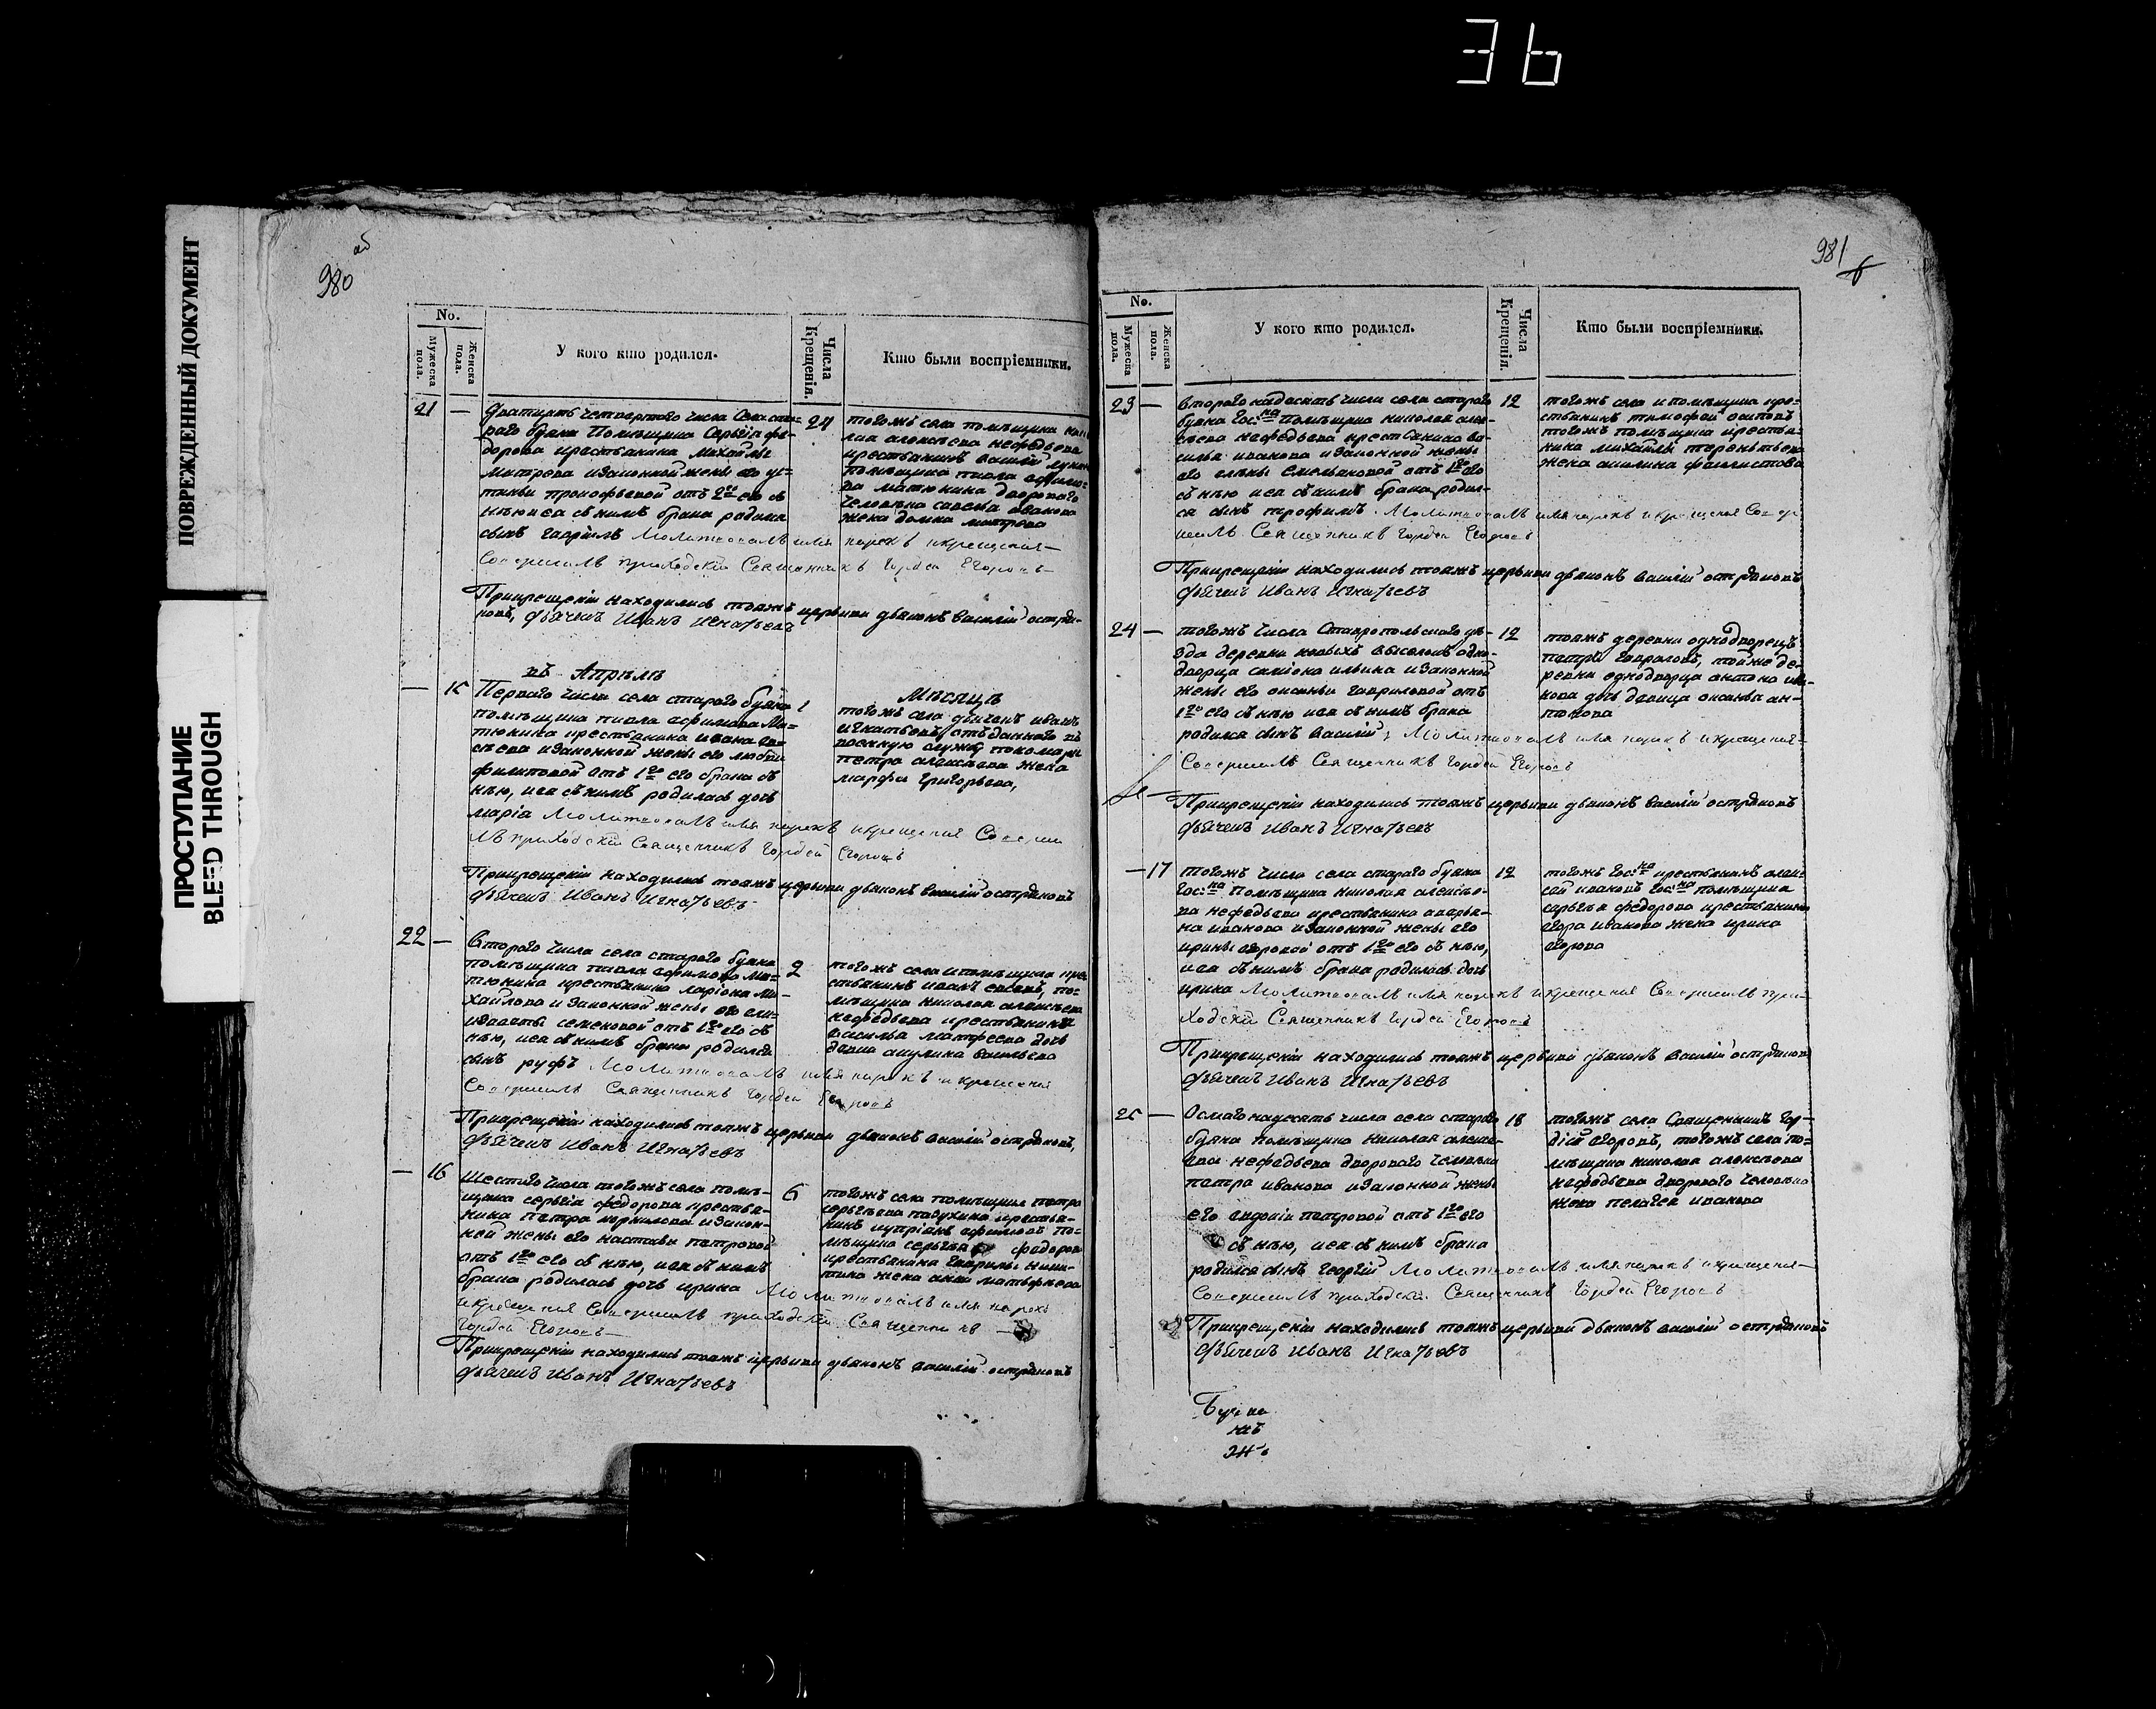 36
ПОВРЕЖДЕННЫЙ ДОКУМЕНТ
ПРОСТУПАНИЕ
BLEED THROUGH
980 об
No.
Мужеска пола.
Женска пола.
У кого кто родился.
Числа Крещенія.
Кто были воспріемники.
21 —
Дватцать четвертого числа села ста-
раго буяна Помѣщика Сергѣя фе-
дорова крестьянина михайлы
митрева изаконной жены его ус-
тиньи прокофьевой отъ 2го его съ
нѣю иея снимъ брака родился
сынъ гаврилъ Молитвовалъ имя нарекъ икрещеніе
Совершилъ приходскій Священникъ Гордей Егоровъ
24
тогожъ села помѣщика
лая алексѣева нефедьева
крестьянинъ василій
помѣщика павла ефимо-
ва матюнина двороваго
человека савелья иванова
жена домна митрева
Прикрещеніи находились тояжъ церькви дьяконъ василій остря-
ковъ, дьячекъ Иванъ Игнатьевъ
въ Апрѣлѣ
Мѣсяцѣ
— 15
Перваго числа села стараго буяна
помѣщика павла ефимова Ма-
тюнина крестьянина ивана
изаконной жены его любви
филиповой отъ 1го его брака съ
нѣю, иея снимъ родилась дочь
марія Молитвовалъ имя нарекъ икрещеніе Соверши
лъ приходскій Священникъ Гордей Егоровъ
1
тогожъ села дьячекъ иванъ
игнатьевъ, отъданного въ
военную службу
петра алексѣева жена
марфа григорьева,
Прикрещеніи находились тояжъ церькви дьяконъ василій остряковъ
дьячекъ Иванъ Игнатьевъ
22 —
Второго числа села стараго буяна
помѣщика павла ефимова Ма-
тюнина крестьянина ларіона Ми-
хайлова изаконной жены его ели-
заветы семеновой отъ 1го его съ
нѣю, иея снимъ брака родился
сынъ руфъ Молитвовалъ имя нарекъ икрещеніе
Совершилъ Священникъ Гордей Егоровъ
2
тогожъ села ипомѣщика кре-
стьянинъ иванъ по-
мѣщика николая алексѣева
нефедьева крестьянина
василья матфеева дочь
девка акулина васильева
Прикрещеніи находились тояжъ церькви дьяконъ василій остряковъ,
дьячекъ Иванъ Игнатьевъ
— 16
Шестого числа тогожъ села помѣ-
щика сергѣя федорова крестья-
нина петра корнилова изакон-
ной жены его настасьи петровой
отъ 1го его съ нѣю, иея снимъ
брака родилась дочь ирина Молитвовалъ имя нарекъ
икрещеніе Совершилъ приходскій Священникъ
Гордей Егоровъ
6
тогожъ села помѣщика петра
сергѣева пастухина крестья-
нинъ купріянъ ефимовъ по-
мѣщика сергѣя федорова
крестьянина гаврилы ники-
тина жена анна матьфѣева
Прикрещеніи находились тояжъ церькви дьяконъ василій остряковъ
дьячекъ Иванъ Игнатьевъ
981
No.
Мужеска пола.
Женска пола.
У кого кто родился.
Числа Крещенія.
Кто были воспріемники.
23 —
Второго надесять числа села стараго
буяна гос:на Помѣщика николая алек-
сѣева нефедьева крестьянина ва-
силья иванова изаконной жены
его елены Емельяновой отъ 1го его
съ нѣю иея снимъ брака родил-
ся сынъ трофимъ. Молитвовалъ имя нарекъ икрещеніе Совер
шилъ Священникъ Гордей Егоровъ
12
тогожъ села ипомѣщика кре-
стьянинъ тимофей осиповъ
тогожъ помѣщика крестья-
нина михайлы терентьева
жена акилина
Прикрещеніи находились тояжъ церькви дьяконъ василій остряковъ
дьячекъ Иванъ Игнатьевъ
24 —
тогожъ числа Ставропольского уѣ-
зда деревни новыхъ выселокъ одно-
дворца самѣона ильина изаконной
жены его оксиньи гавриловой отъ
1го его съ нѣю иея снимъ брака
родился сынъ василій; Молитвовалъ имя нарекъ икрещеніе
Совершилъ Священникъ Гордей Егоровъ
12
тояжъ деревни однодворецъ
петръ гавриловъ, тойже де-
ревни однодворца антона ива-
нова дочь девица оксинья ан-
тонова
Прикрещеніи находились тояжъ церькви дьяконъ василій остряковъ
дьячекъ Иванъ Игнатьевъ
— 17
тогожъ числа села стараго буяна
гос:на Помѣщика николая алексѣе-
ва нефедьева крестьянина аверья-
на иванова изаконной жены его
ирины егоровой отъ 1го его съ нѣю,
иея снимъ брака родилась дочь
ирина Молитвовалъ имя нарекъ икрещеніе Совершилъ при-
ходскій Священникъ Гордей Егоровъ
12
тогожъ гос:на крестьянинъ алек-
сѣй ивановъ гос:на помѣщика
сергѣя федорова крестьянина
егора иванова жена ирина
егорова
Прикрещеніи находились тояжъ церькви дьяконъ василій остряковъ
дьячекъ Иванъ Игнатьевъ
25 —
Осмаго надесять числа села стараго
буяна помѣщика николая алексѣ-
ева нефедьева двороваго человека
петра иванова изаконной жены
его евдокіи петровой отъ 1го его
съ нѣю, иея снимъ брака
родился сынъ георгій Молитвовалъ имя нарекъ икрещеніе
Совершилъ приходскій Священникъ Гордей Егоровъ
18
тогожъ села Священникъ гор-
дей егоровъ, тогожъ села по-
мѣщика николая алексѣева
нефедьева двороваго человека
жена пелагея иванова
Прикрещеніи находились тояжъ церькви дьяконъ василій остряковъ
дьячекъ Иванъ Игнатьевъ